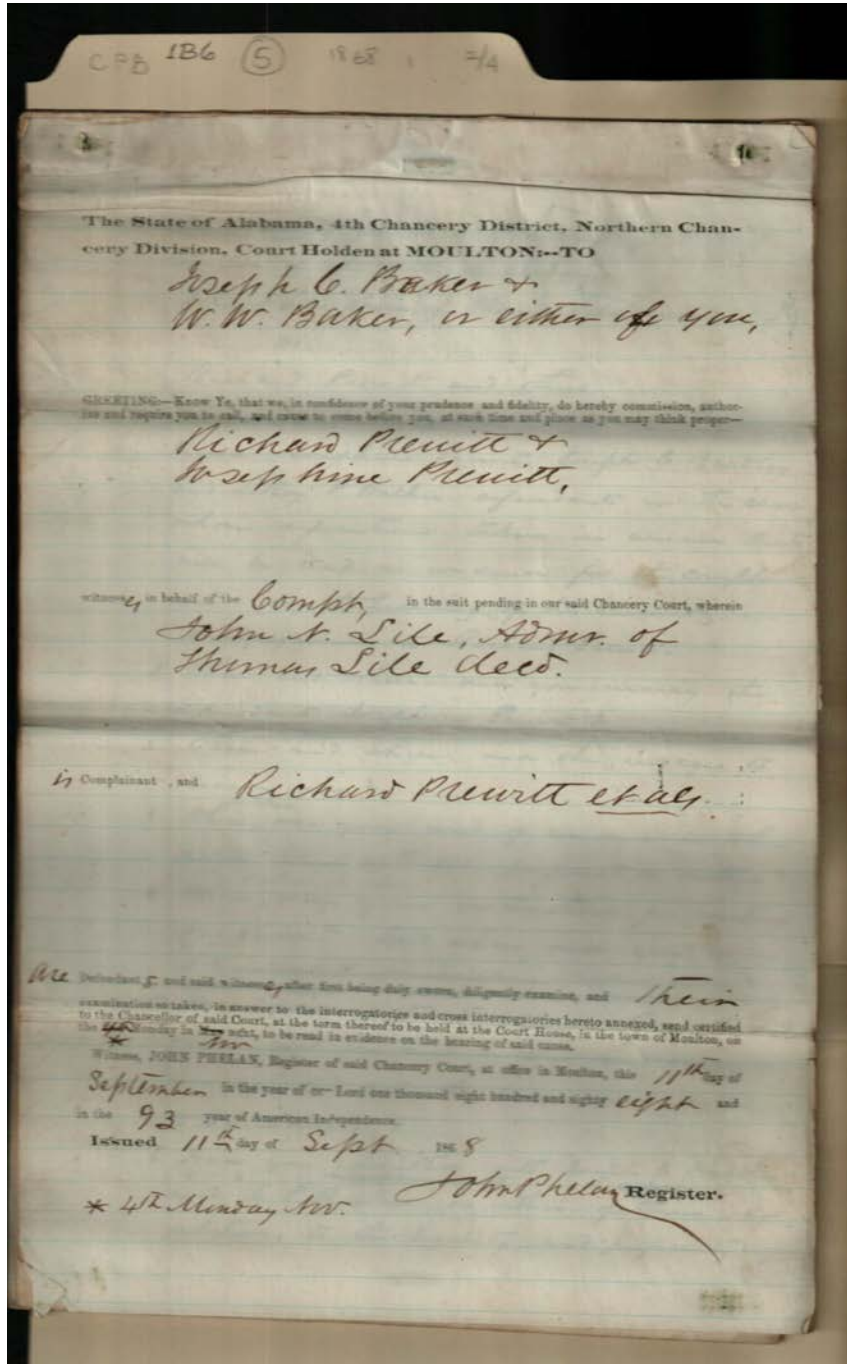 CPB 1B6 5 1868
The State of Alabama, 4th Chancery District, Northern Chan-
cery Division, Court Holden at MOULTON:--TO
Joseph C. Baker &
W. W. Baker, or either of you,
GREETING:—Know Ye, that we, in confidence of your prudence and fidelity, do hereby commission, author-
ize and require you to call, and cause to come before you, at such time and place as you may think proper—
Richard Prewitt &
Josephine Prewitt,
witnesses, in behalf of the Compt, in the suit pending in our said Chancery Court, wherein
John N. Lile, Admr. of
Thomas Lile decd.
is Complainant, and Richard Prewitt et als.
are Defendants and said witnesses, after first being duly sworn, diligently examine, and their
examination so taken, in answer to the interrogatories and cross interrogatories hereto annexed, send certified
to the Chancellor of said Court, at the term thereof to be held at the Court House, in the town of Moulton, on
the 4th Monday in May next, to be read in evidence on the hearing of said cause.
* Nov
Witness, JOHN PHELAN, Register of said Chancery Court, at office in Moulton, this 11th day of
September in the year of or Lord one thousand eight hundred and eighty eight and
in the 93 year of American Independence.
Issued 11th day of Sept 1868
John Phelan Register.
* 4th Monday Nov.